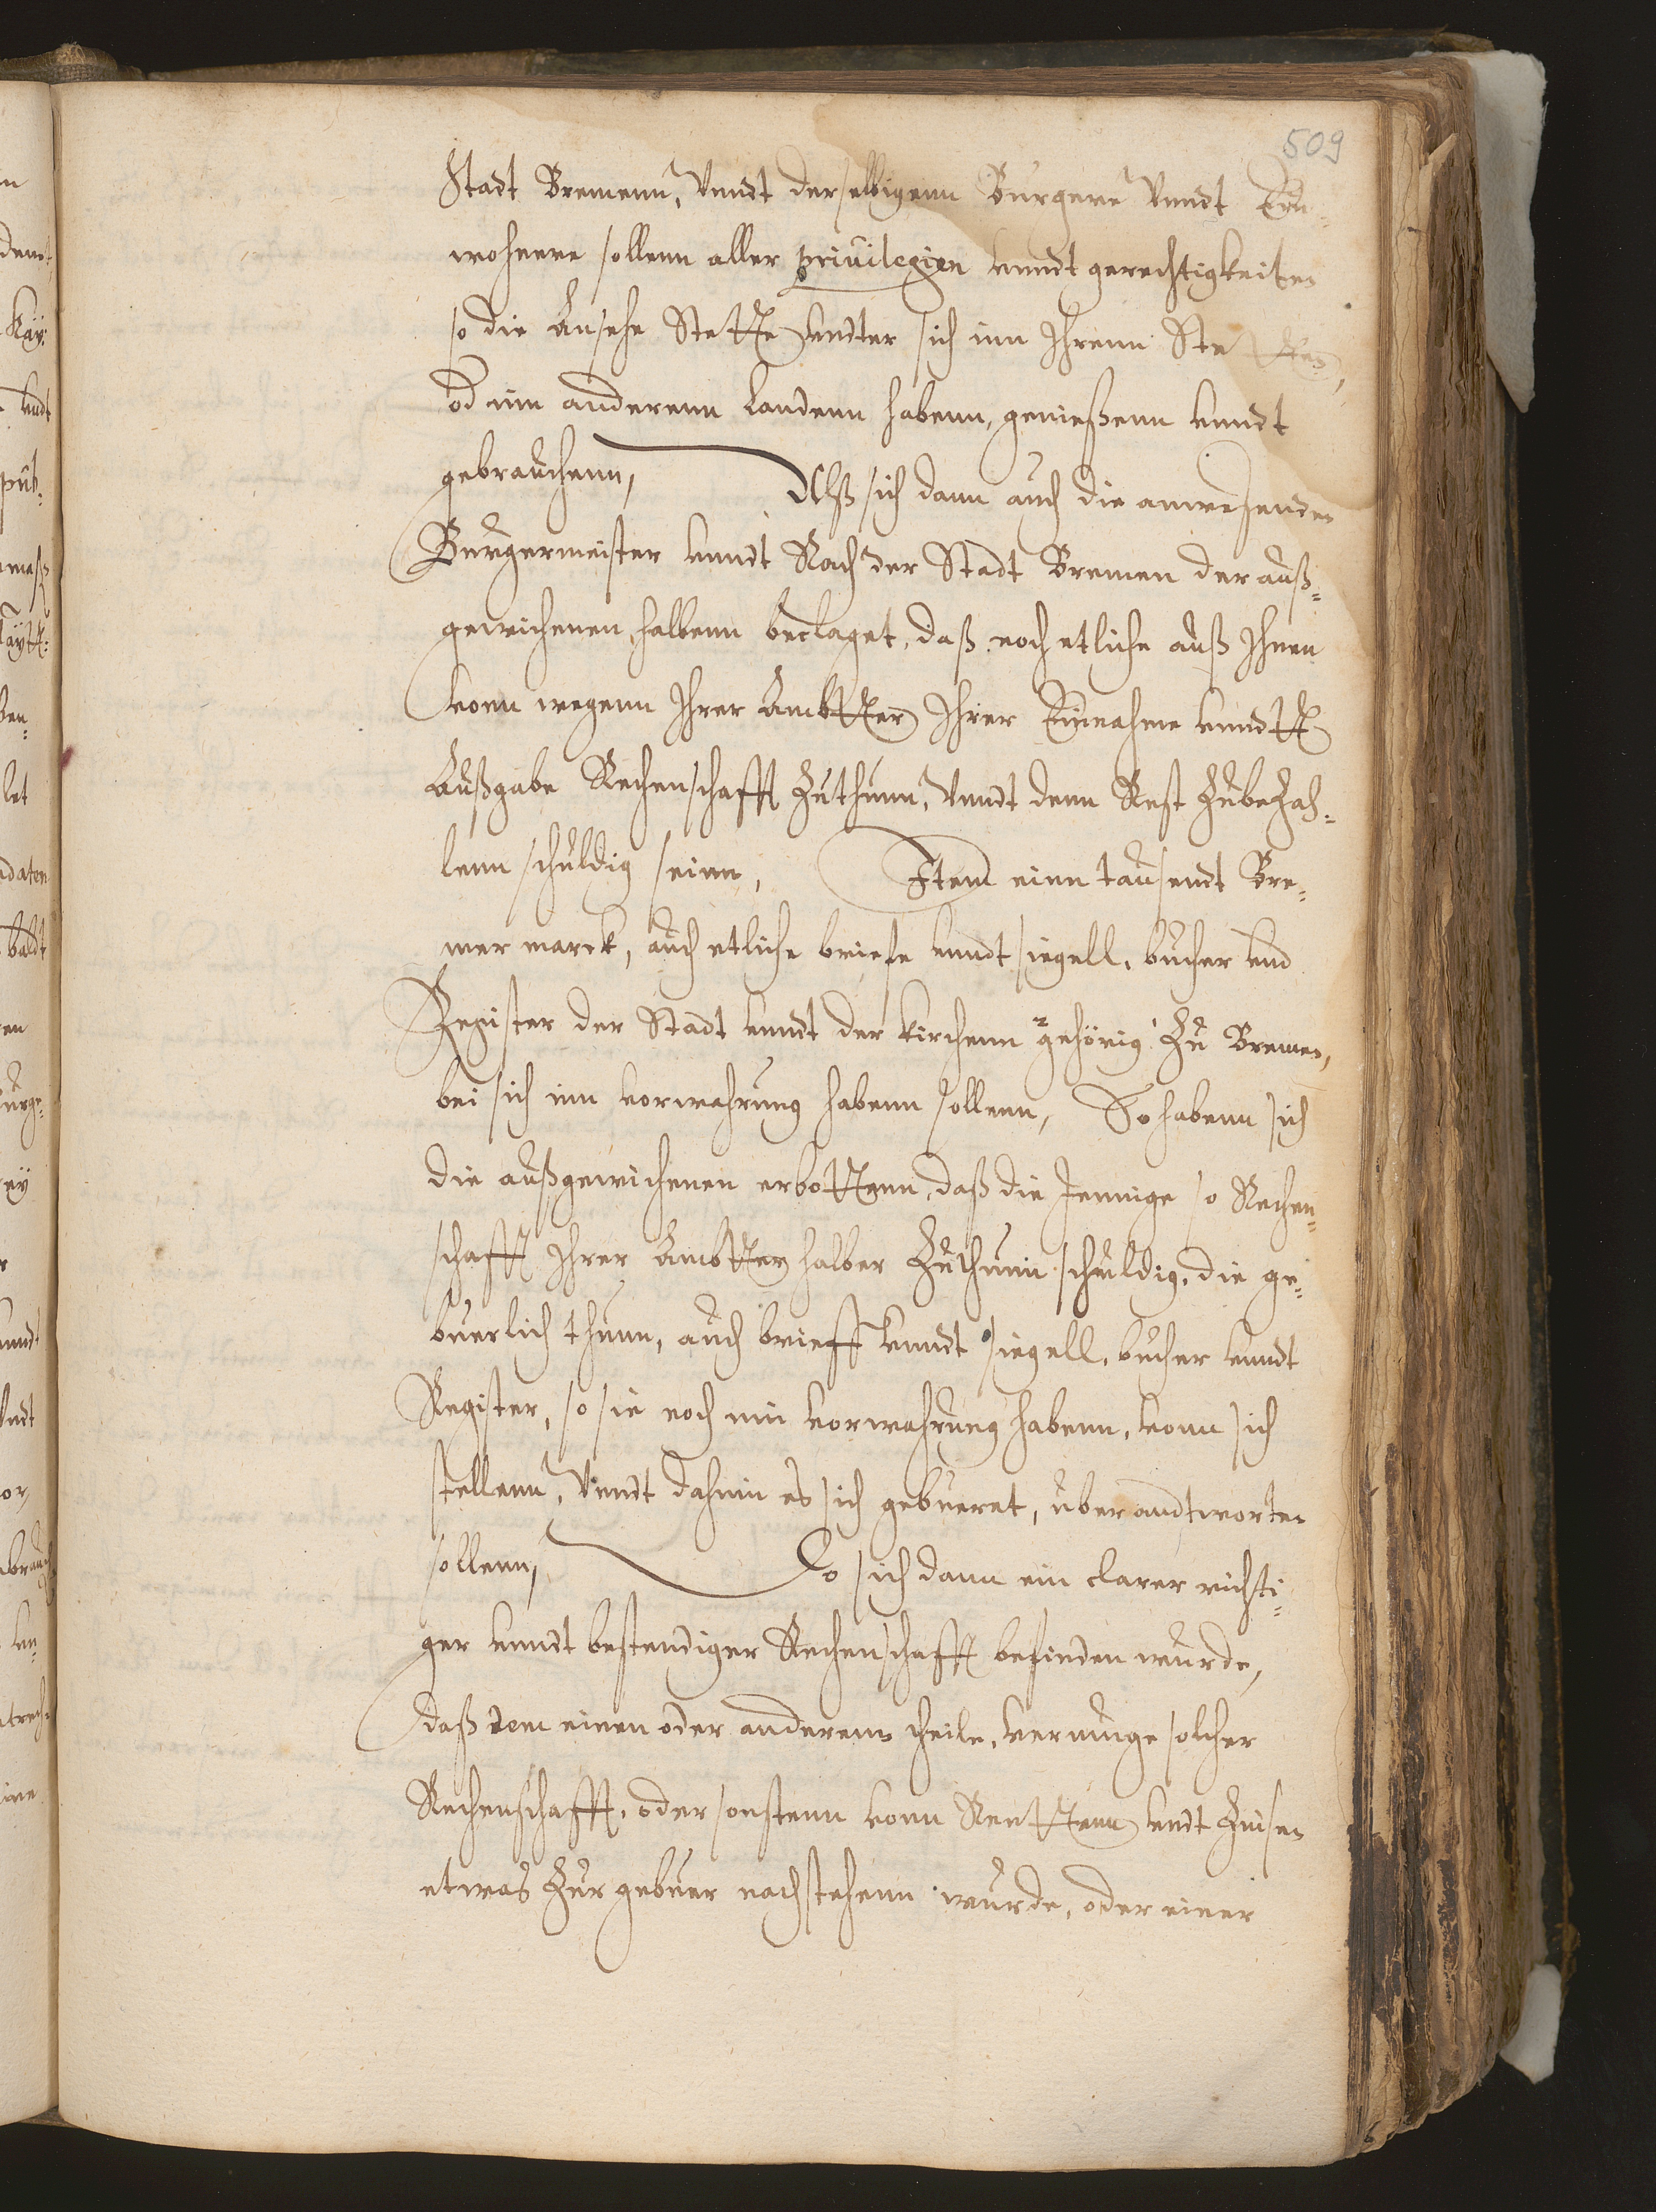 509
Stadt Bremenn, Vnndt derselbigenn Burgere Vnndt Ein¬
wohnere sollenn aller priuilegien vnndt gerechtigkeiten
so die Ansehe Stette vndter sich inn Ihrenn Stetten,
od inn anderenn Landenn habenn, genießenn vnndt
gebrauchenn, Alß sich dann auch die anwesenden
Burgermeister vnndt Rath der Stadt Bremen der auß¬
gewichenen halbenn beclaget, daß noch etliche auß Ihnen
vonn wegenn Ihrer Ambtter Ihrer Einnahme vnndt
Außgabe Rechenschafft Zuthunn, Vnndt denn Rest Zubezah¬
lenn schuldig seinn, Item einn tausendt Bre¬
mer marck, auch etliche briefe vnndt siegell, bucher vnd
Register der Stadt vnndt der kirchenn gehörig Zu Bremen,
bei sich inn vorwahrung habenn sollenn, So habenn sich
die außgewichenen erbottenn, daß die Jennige so Rechen¬
schafft Ihrer Ambtter halber Zuthunn schuldig, die ge¬
buerlich thunn, auch brieff vnndt siegell, bucher vnndt
Register, so sie noch inn vorwahrung habenn, vonn sich
stellenn, Vnndt dahinn es sich gebueret, uberandtworten
sollenn, Do sich dann ein clarer richti¬
ger vnndt bestendiger Rechenschafft befinden wurde,
daß dem einen oder anderenn theile, vermuge solcher
Rechenschafft, oder sonstenn vonn Renttenn vndt Zinsen
etwas Zur gebuer nachstehenn wurde, oder einer